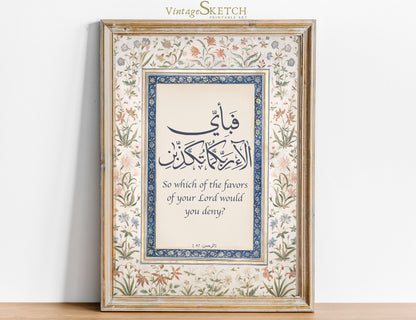 VintageSKETCH
PRINTABLE ART
فَبِأَيِّ
آلَاءِ رَبِّكُمَا تُكَذِّبَانِ
So which of the favors
of your Lord would
you deny?